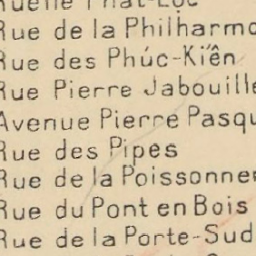 Ruelle Phat-Lộc
Rue de la Philharmo
Rue des Phúc-Kiên
Rue Pierre Jabouille
Avenue Pierre Pasqu
Rue des Pipes
Rue de la Poissonner
Rue du Pont en Bois
Rue de la Porte-Sud